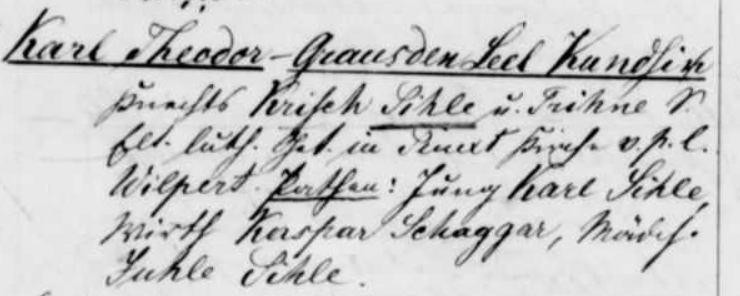 Karl Theodor - Grausden Leel Kundsin
Knechts Krisch Sihle u. Trihne S.
Elt. luth. Get. in Siuxt Kirche v. p. l.
Wilpert. Pathen: Jung Karl Sihle,
Wirth Kaspar Schaggar, Mädch.
Juhle Sihle.